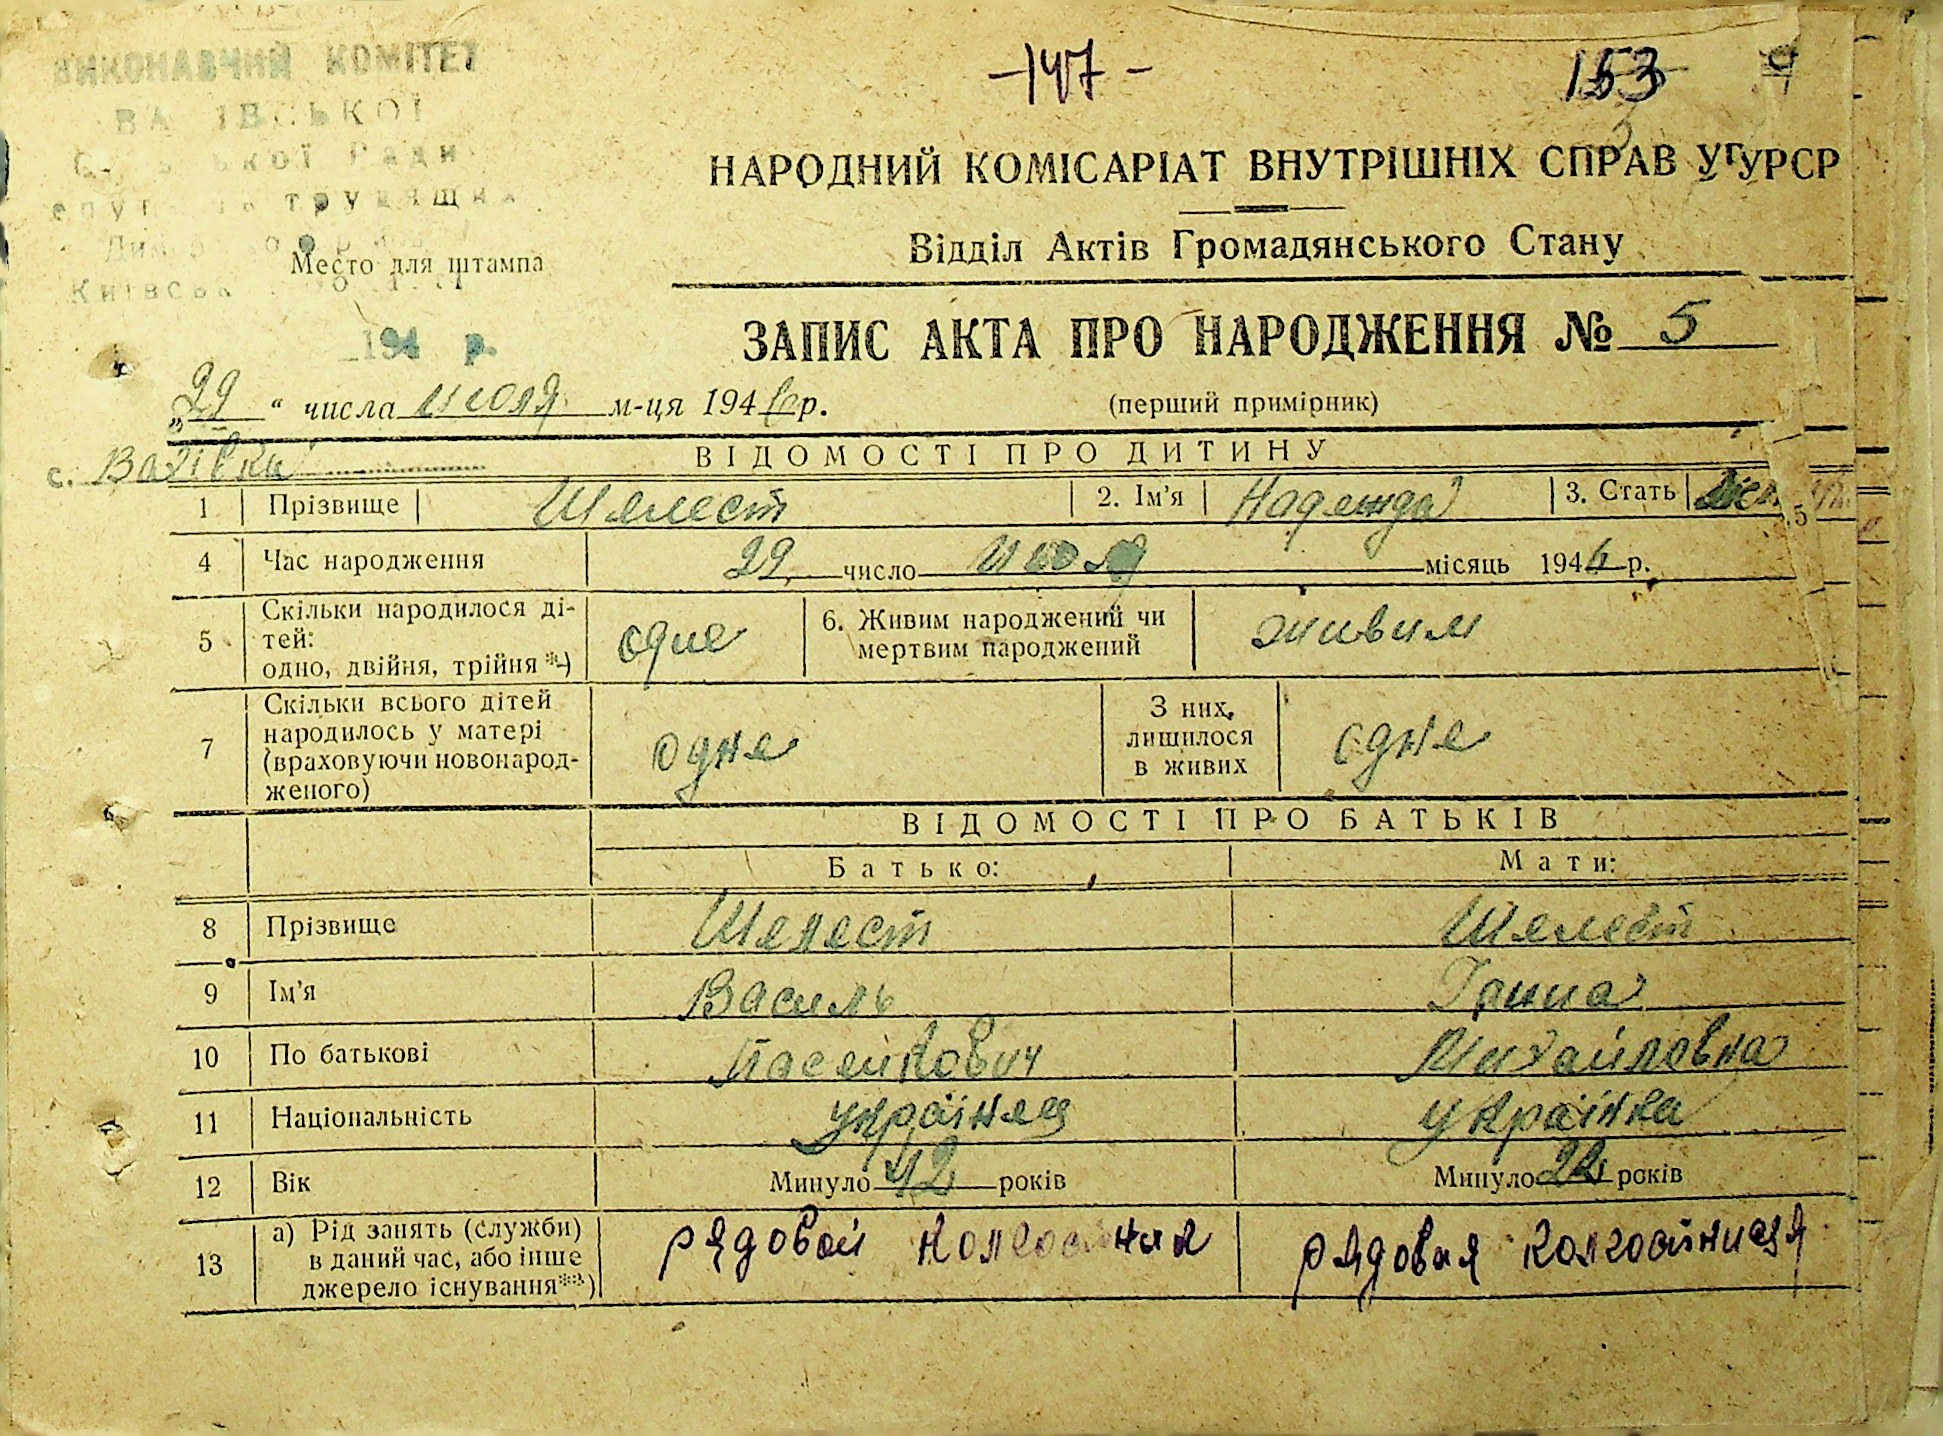 ВИКОНАВЧИЙ КОМІТЕТ
-147- 153
НАРОДНИЙ КОМІСАРІАТ ВНУТРІШНІХ СПРАВ УРСР
Відділ Актів Громадянського Стану
Место для штампа
194 р.
ЗАПИС АКТА ПРО НАРОДЖЕННЯ № 5
„29“ числа июля м-ця 194 р.
(перший примірник)
с.
ВІДОМОСТІ ПРО ДИТИНУ
1 Прізвище Шелест 2. Ім'я Надежда 3. Стать
4 Час народження 29 число июля місяць 194 р.
5 Скільки народилося ді-
тей:
одно, двійня, трійня *) одне 6. Живим народжений чи
мертвим народжений живим
7 Скільки всього дітей
народилось у матері
(враховуючи новонарод-
женого) одне З них,
лишилося
в живих одне
ВІДОМОСТІ ПРО БАТЬКІВ
Батько: Мати:
8 Прізвище Шелест Шелест
9 Ім'я Василь Ганна
10 По батькові Михайловна
11 Національність українец українка
12 Вік Минуло 42 років Минуло років
13 а) Рід занять (служби)
в даний час, або інше
джерело існування**) рядовой колгоспник рядовая колгоспниця